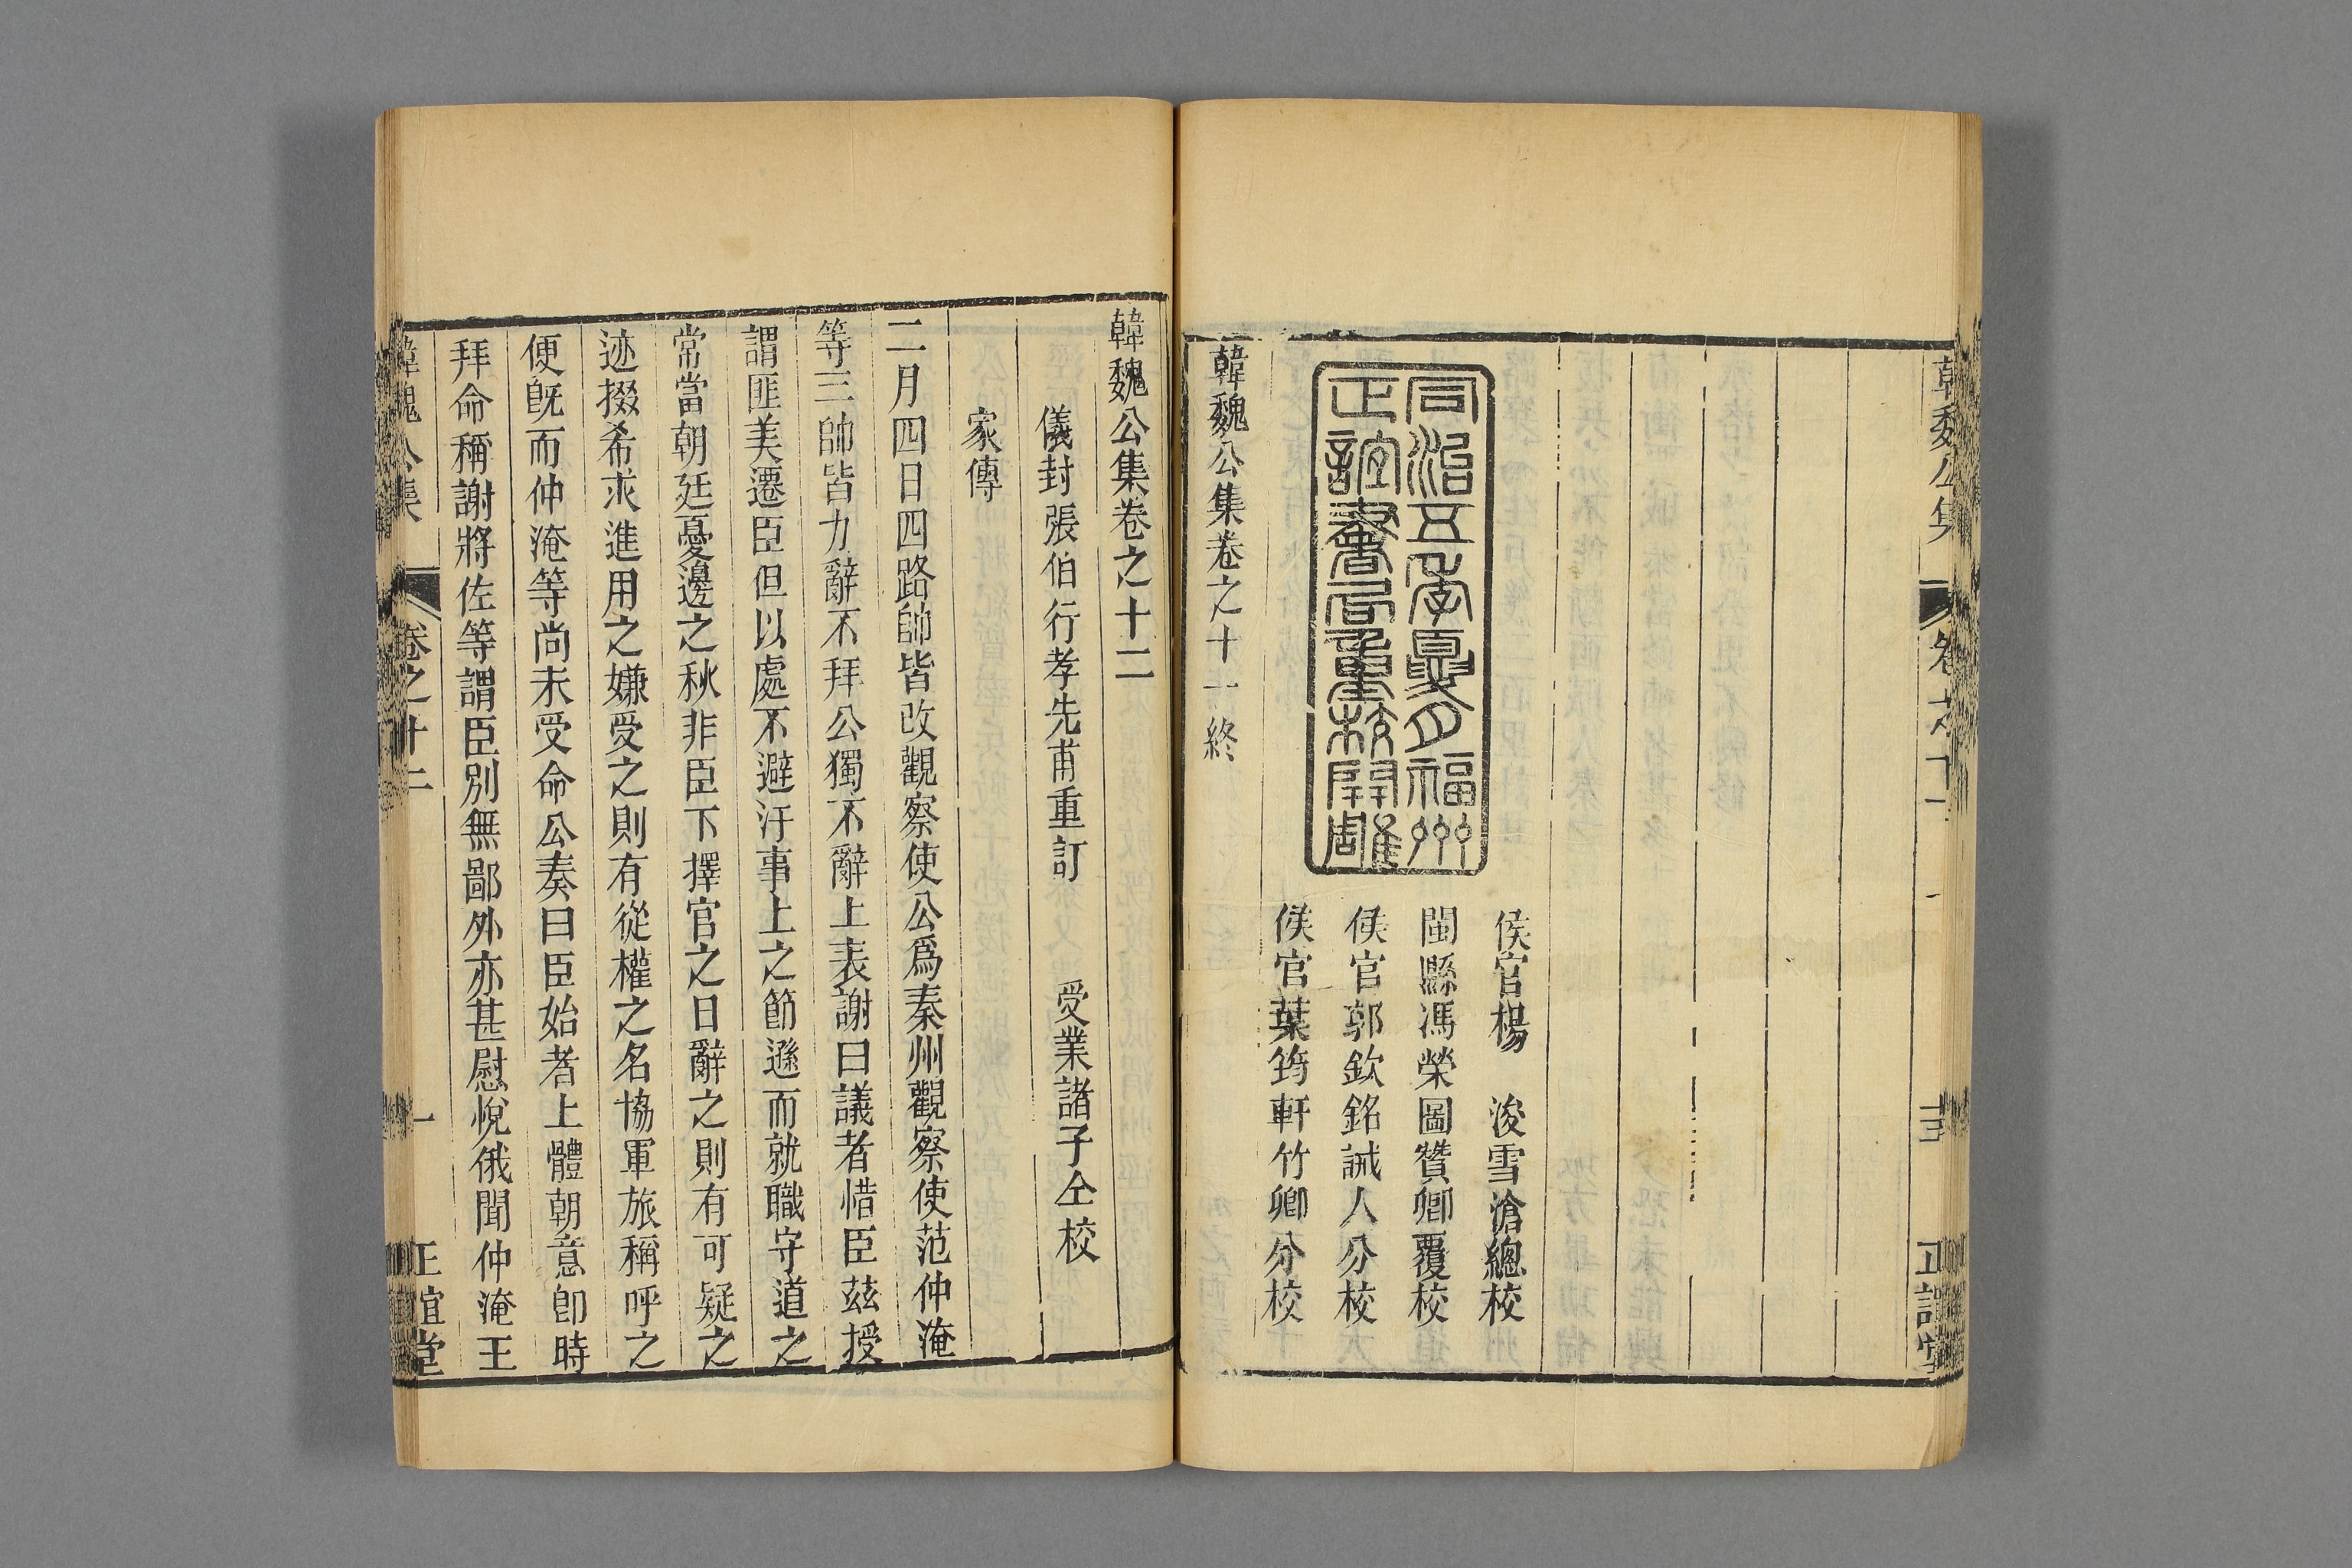 韓魏公集
卷之十一
正誼堂
侯官楊　浚雪滄總校
閩縣馮榮圖贊卿覆校
侯官郭欽銘誠人分校
侯官葉筠軒竹卿分校
同治五年夏月福州
正誼書局重校開雕
韓魏公集卷之十一終
韓魏公集卷之十二
儀封張伯行孝先甫重訂　受業諸子仝校
家傳
二月四日四路帥皆改觀察使公爲秦州觀察使范仲淹
等三帥皆力辭不拜公獨不辭上表謝曰議者惜臣茲授
謂匪美遷臣但以處不避汙事上之節遜而就職守道之
常當朝廷憂邊之秋非臣下擇官之日辭之則有可疑之
迹掇希求進用之嫌受之則有從權之名協軍旅稱呼之
便旣而仲淹等尚未受命公奏曰臣始者上體朝意卽時
拜命稱謝將佐等謂臣別無鄙外亦甚慰悅俄聞仲淹王
韓魏公集
卷之十二
一
正誼堂